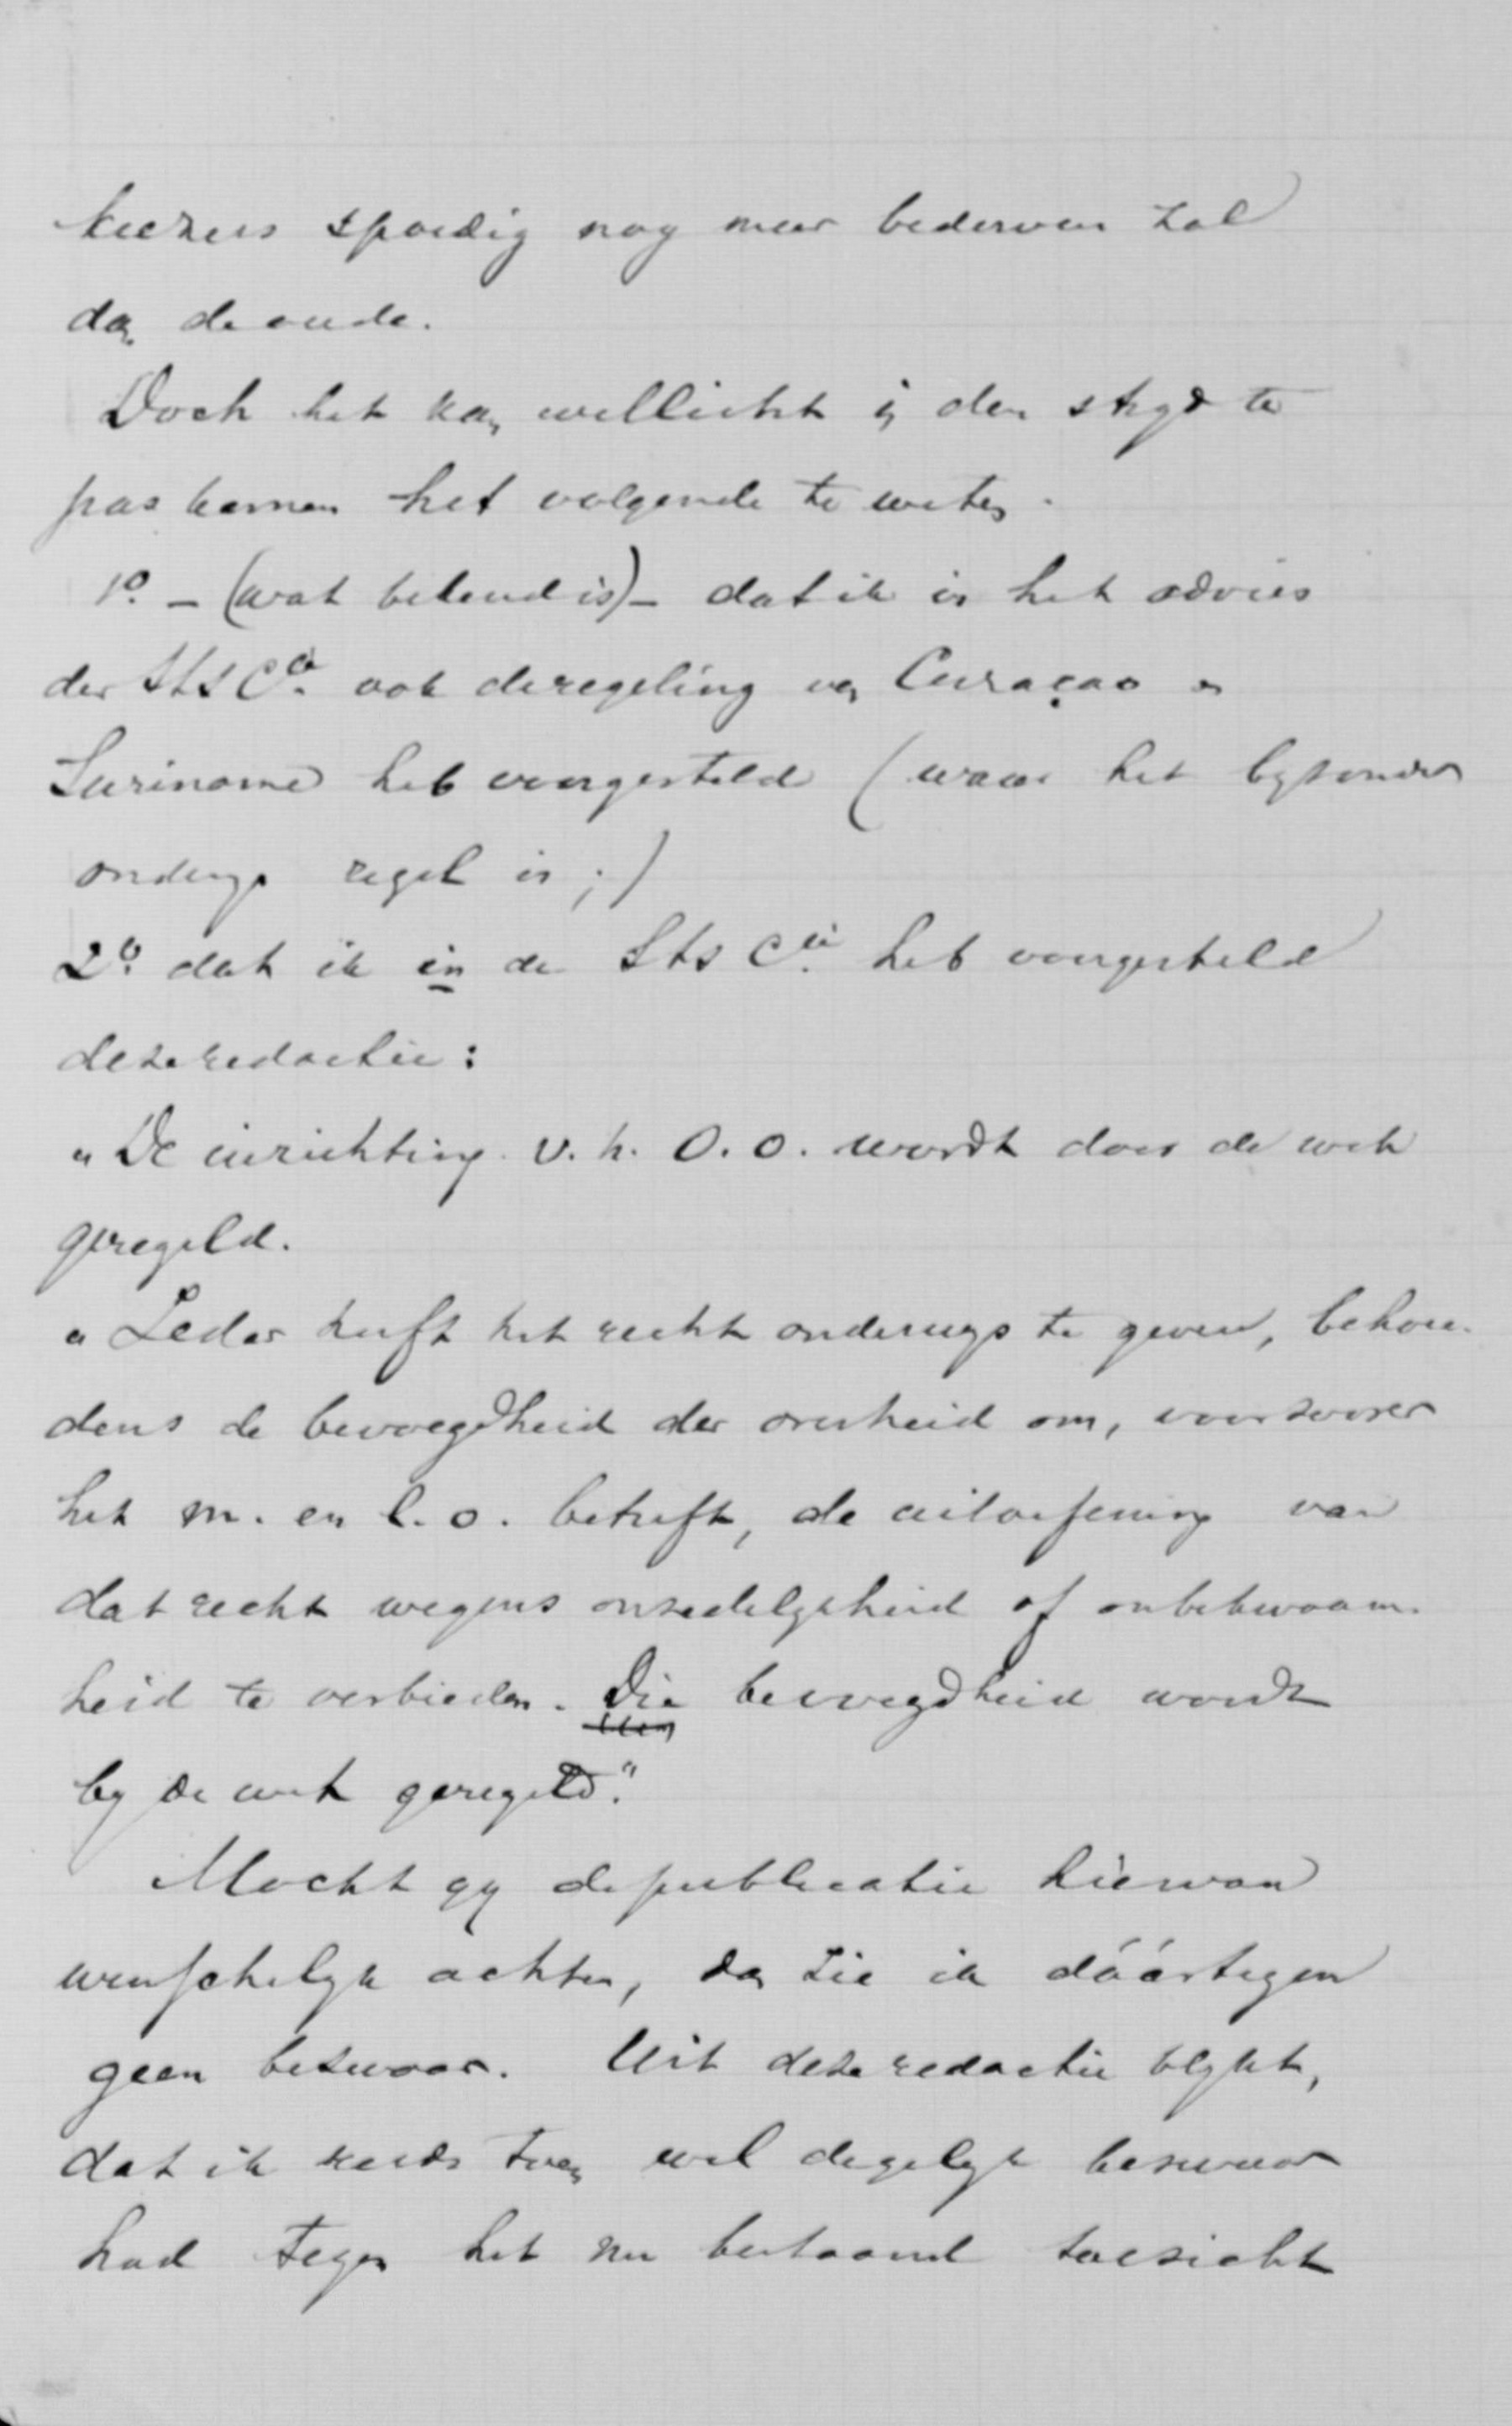 kiezers spoedig nog meer bederven zal
dan de oude.
Doch het kan wellicht in den strijd te
pas komen het volgende te weten.
1º. – (wat bekend is) – dat ik in het advies
der Sts Cie. ook de regeling van Curaçao en
Suriname heb voorgesteld (waar het byzonder
onderwys regel is ;)
2º. dat ik in de Sts Cie. heb voorgesteld
deze redactie:
„De inrichting v. h. O. O. wordt door de wet
geregeld.
„Ieder heeft het recht onderwys te geven, behou-
dens de bevoegdheid der overheid om, voorzoover
het m. en l. o. betreft, de uitoefening van
dat recht wegens onzedelykheid of onbekwaam-
heid te verbieden. Die bevoegdheid wordt
by de wet geregeld."
Mocht gy de publicatie hiervan
wenschelyk achten, dan zie ik dáártegen
geen bezwaar. Uit deze redactie blykt,
dat ik reeds toen wel degelyk bezwaar
had tegen het nu bestaand toezicht